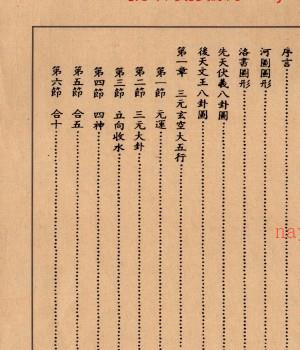 序言
河圖圖形
洛書圖形
先天伏羲八卦圖
後天文王八卦圖
第一章 三元玄空大五行
第一節 元運
第二節 三元大卦
第三節 立向收水
第四節 四神
第五節 合五
第六節 合十
na